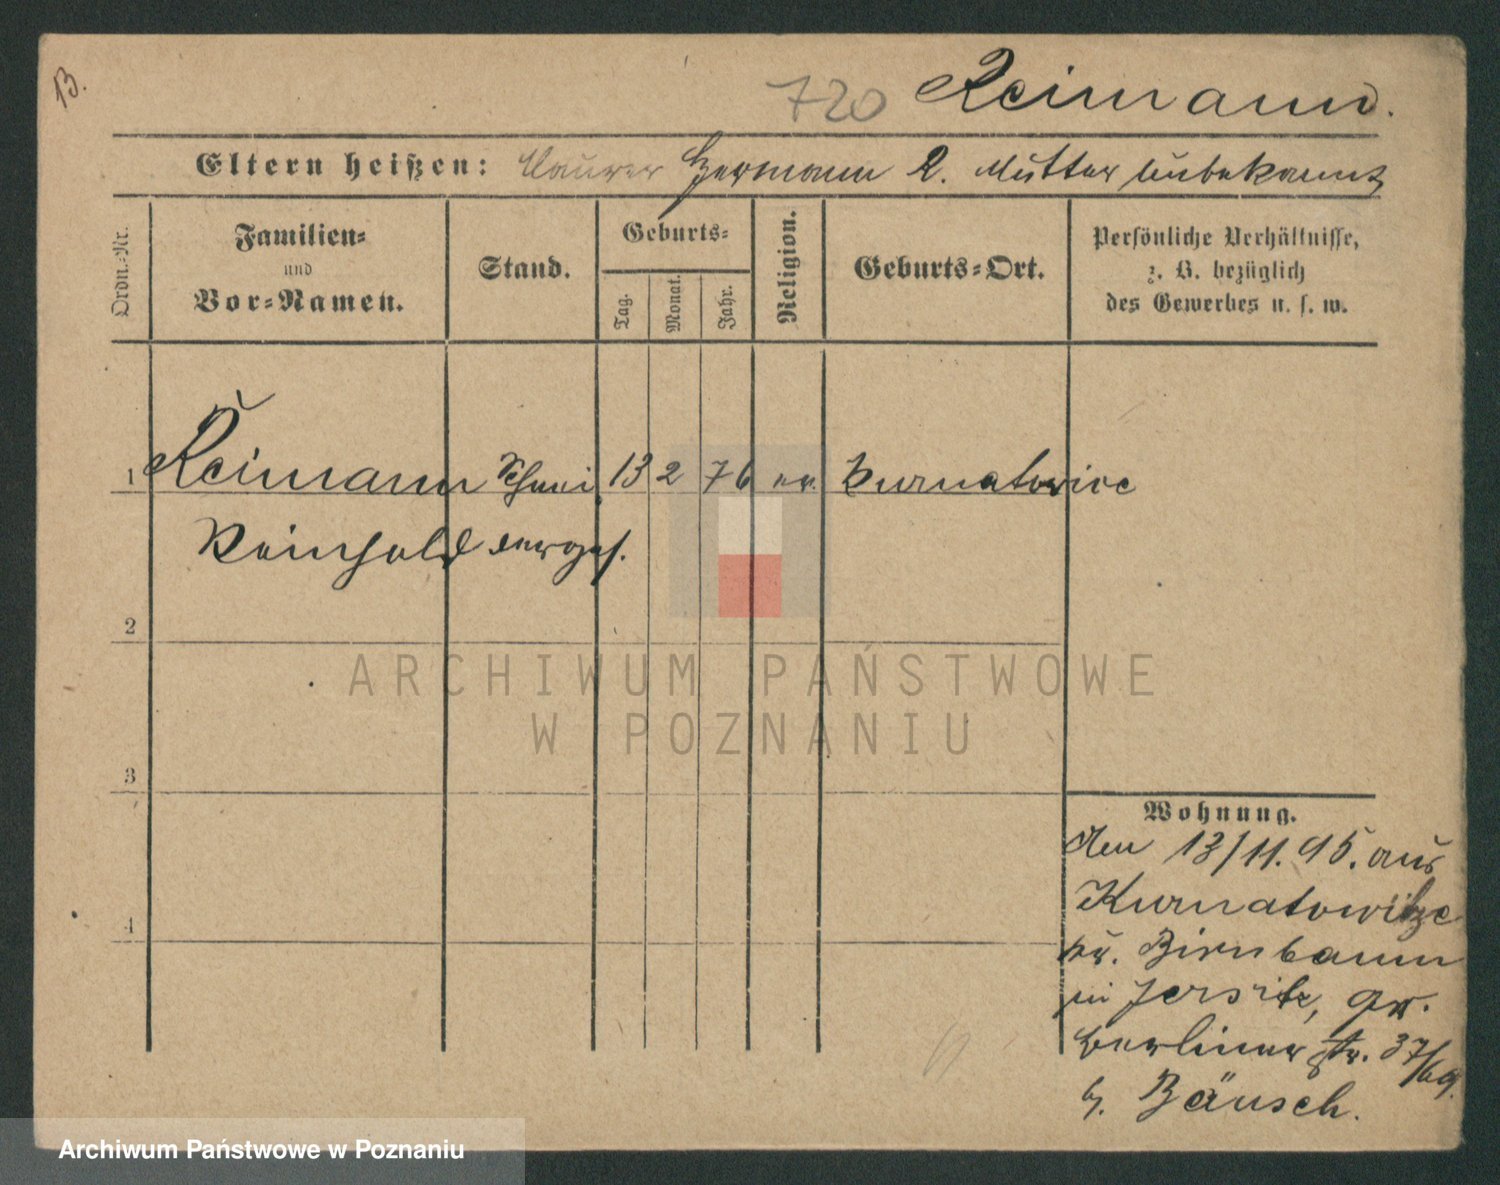 13.
720 Reimann.
Eltern heißen: Maurer Hermann R. Mutter unbekannt
Ordn.-Nr.
Familien-
und
Vor-Namen.
Stand.
Geburts-
Tag.
Monat.
Jahr.
Religion.
Geburts-Ort.
Persönliche Verhältnisse,
z. B. bezüglich
des Gewerbes u. s. w.
1 Reimann Schnei 13 2 76 ev. Kurnatowice
Reinhold derges.
2
3
4
Wohnung.
Am 13/11. 95. aus
Kurnatowitze
Kr. Birnbaum
in Jersitz, gr.
Berliner str. 37/69.
b. Bäusch.
ARCHIWUM PAŃSTWOWE
W POZNANIU
Archiwum Państwowe w Poznaniu